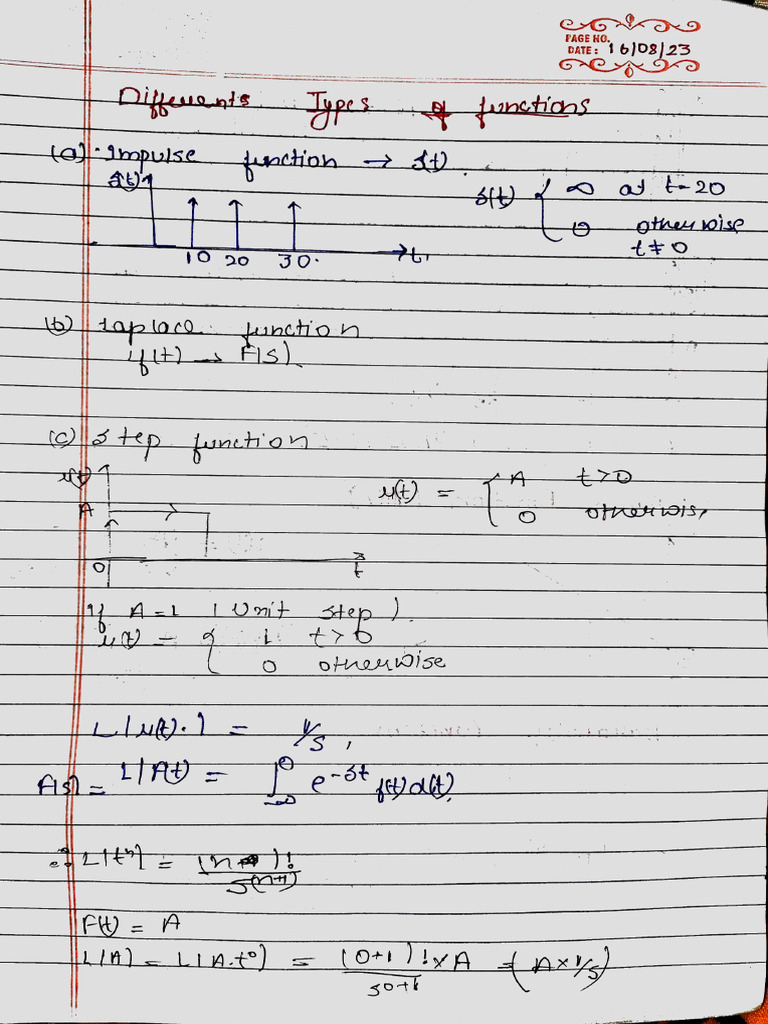 PAGE NO.
DATE: 16/08/23
Differents Types of functions
(a) Impulse function → δ(t)
δ(t)
δ(t) { ∞ at t=20
0 otherwise
t≠0
10 20 30 t
(b) Laplace function
f(t) → F(s)
(c) Step function
u(t)
A
u(t) = { A t>0
0 otherwis
0 t
If A=1 (Unit step)
u(t) = { 1 t>0
0 otherwise
L[u(t)] = 1/s,
F(s) = L[f(t) = ∫ e^-st f(t) d(t)
∴ L[t^n] = (n )! / s^(n+1)
F(t) = A
L[A] = L[A.t^0] = (0+1)!×A / s^0+1 = (A×1/s)